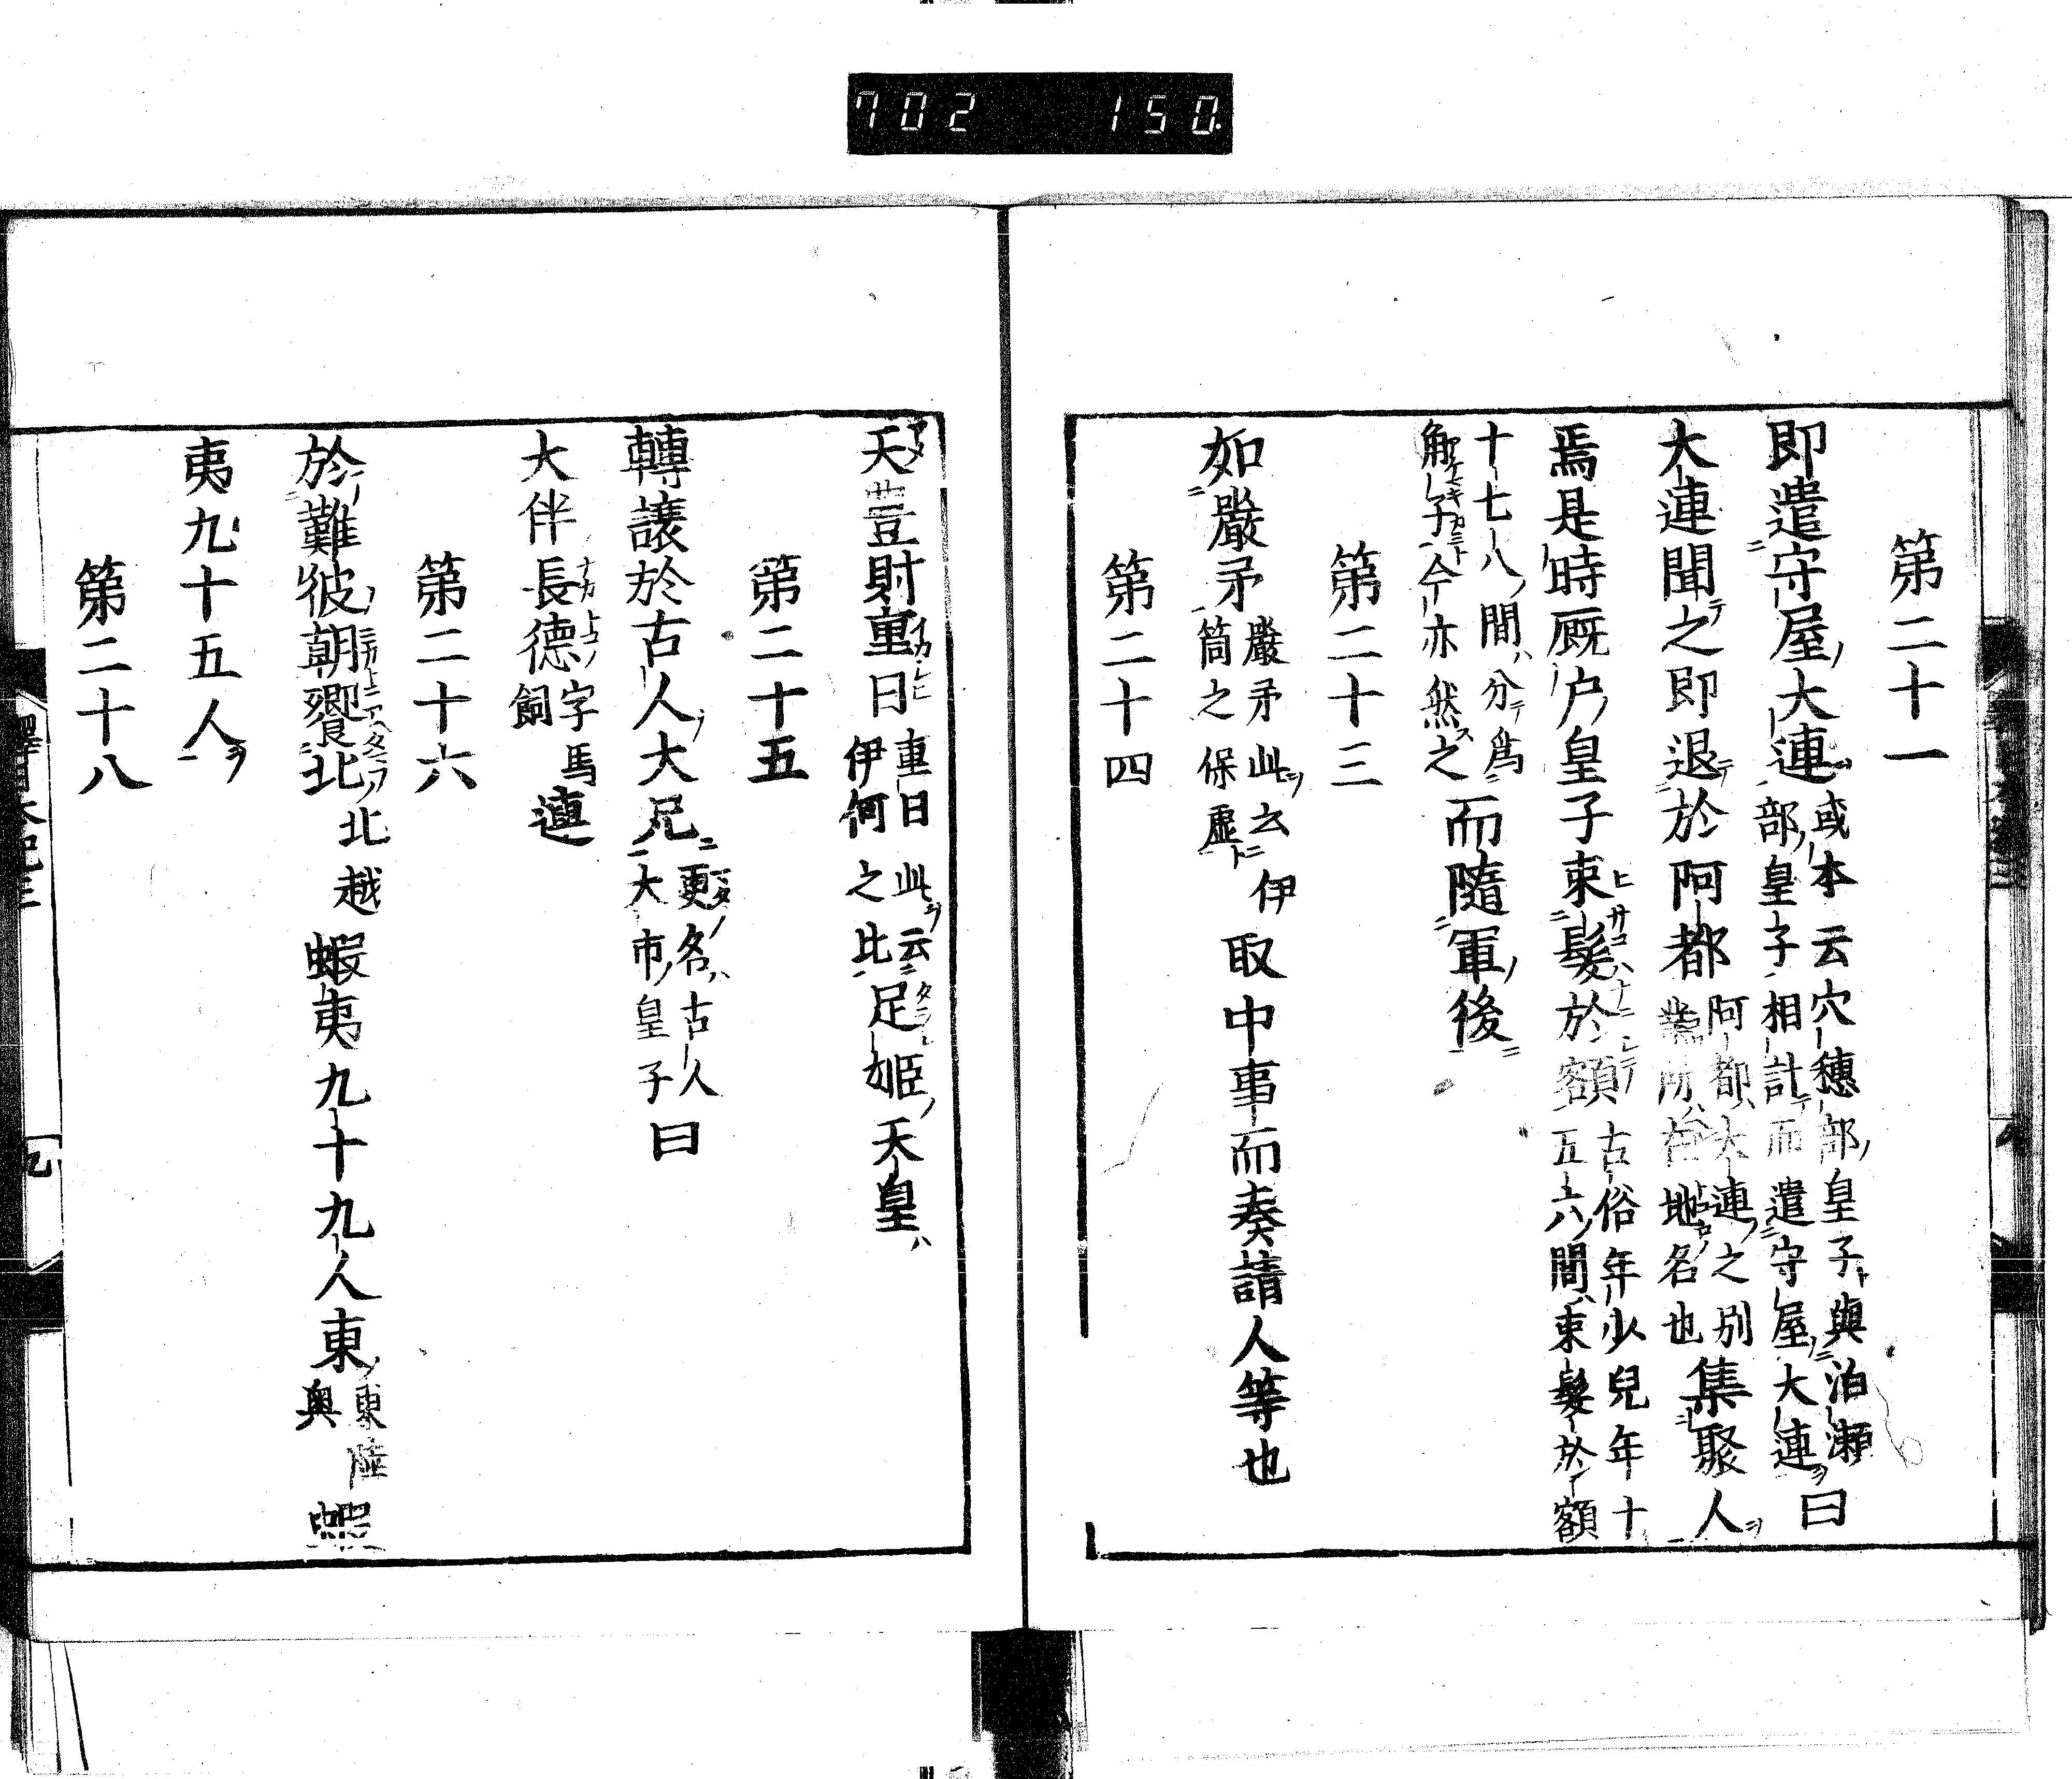 702 150
第二十一
即遣守屋大連或本云穴穂部皇子與泊瀬部皇子相計而遣守屋大連曰
大連聞之即退於阿都阿都大連之別業所在地名也集聚人
焉是時厩戸皇子束髪於額古俗年少兒年十五六間束髪於額
十七八間分為角子今亦然之而隨軍後
第二十三
如嚴矛嚴矛此云伊箇之保虛取中事而奏請人等也
第二十四
天豊財重日重日此云伊何之比足姫天皇
第二十五
轉讓於古人大兄更名古人大市皇子曰
大伴長德字馬飼連
第二十六
於難彼朝饗北北越蝦夷九十九人東東陸奥蝦
夷九十五人
第二十八